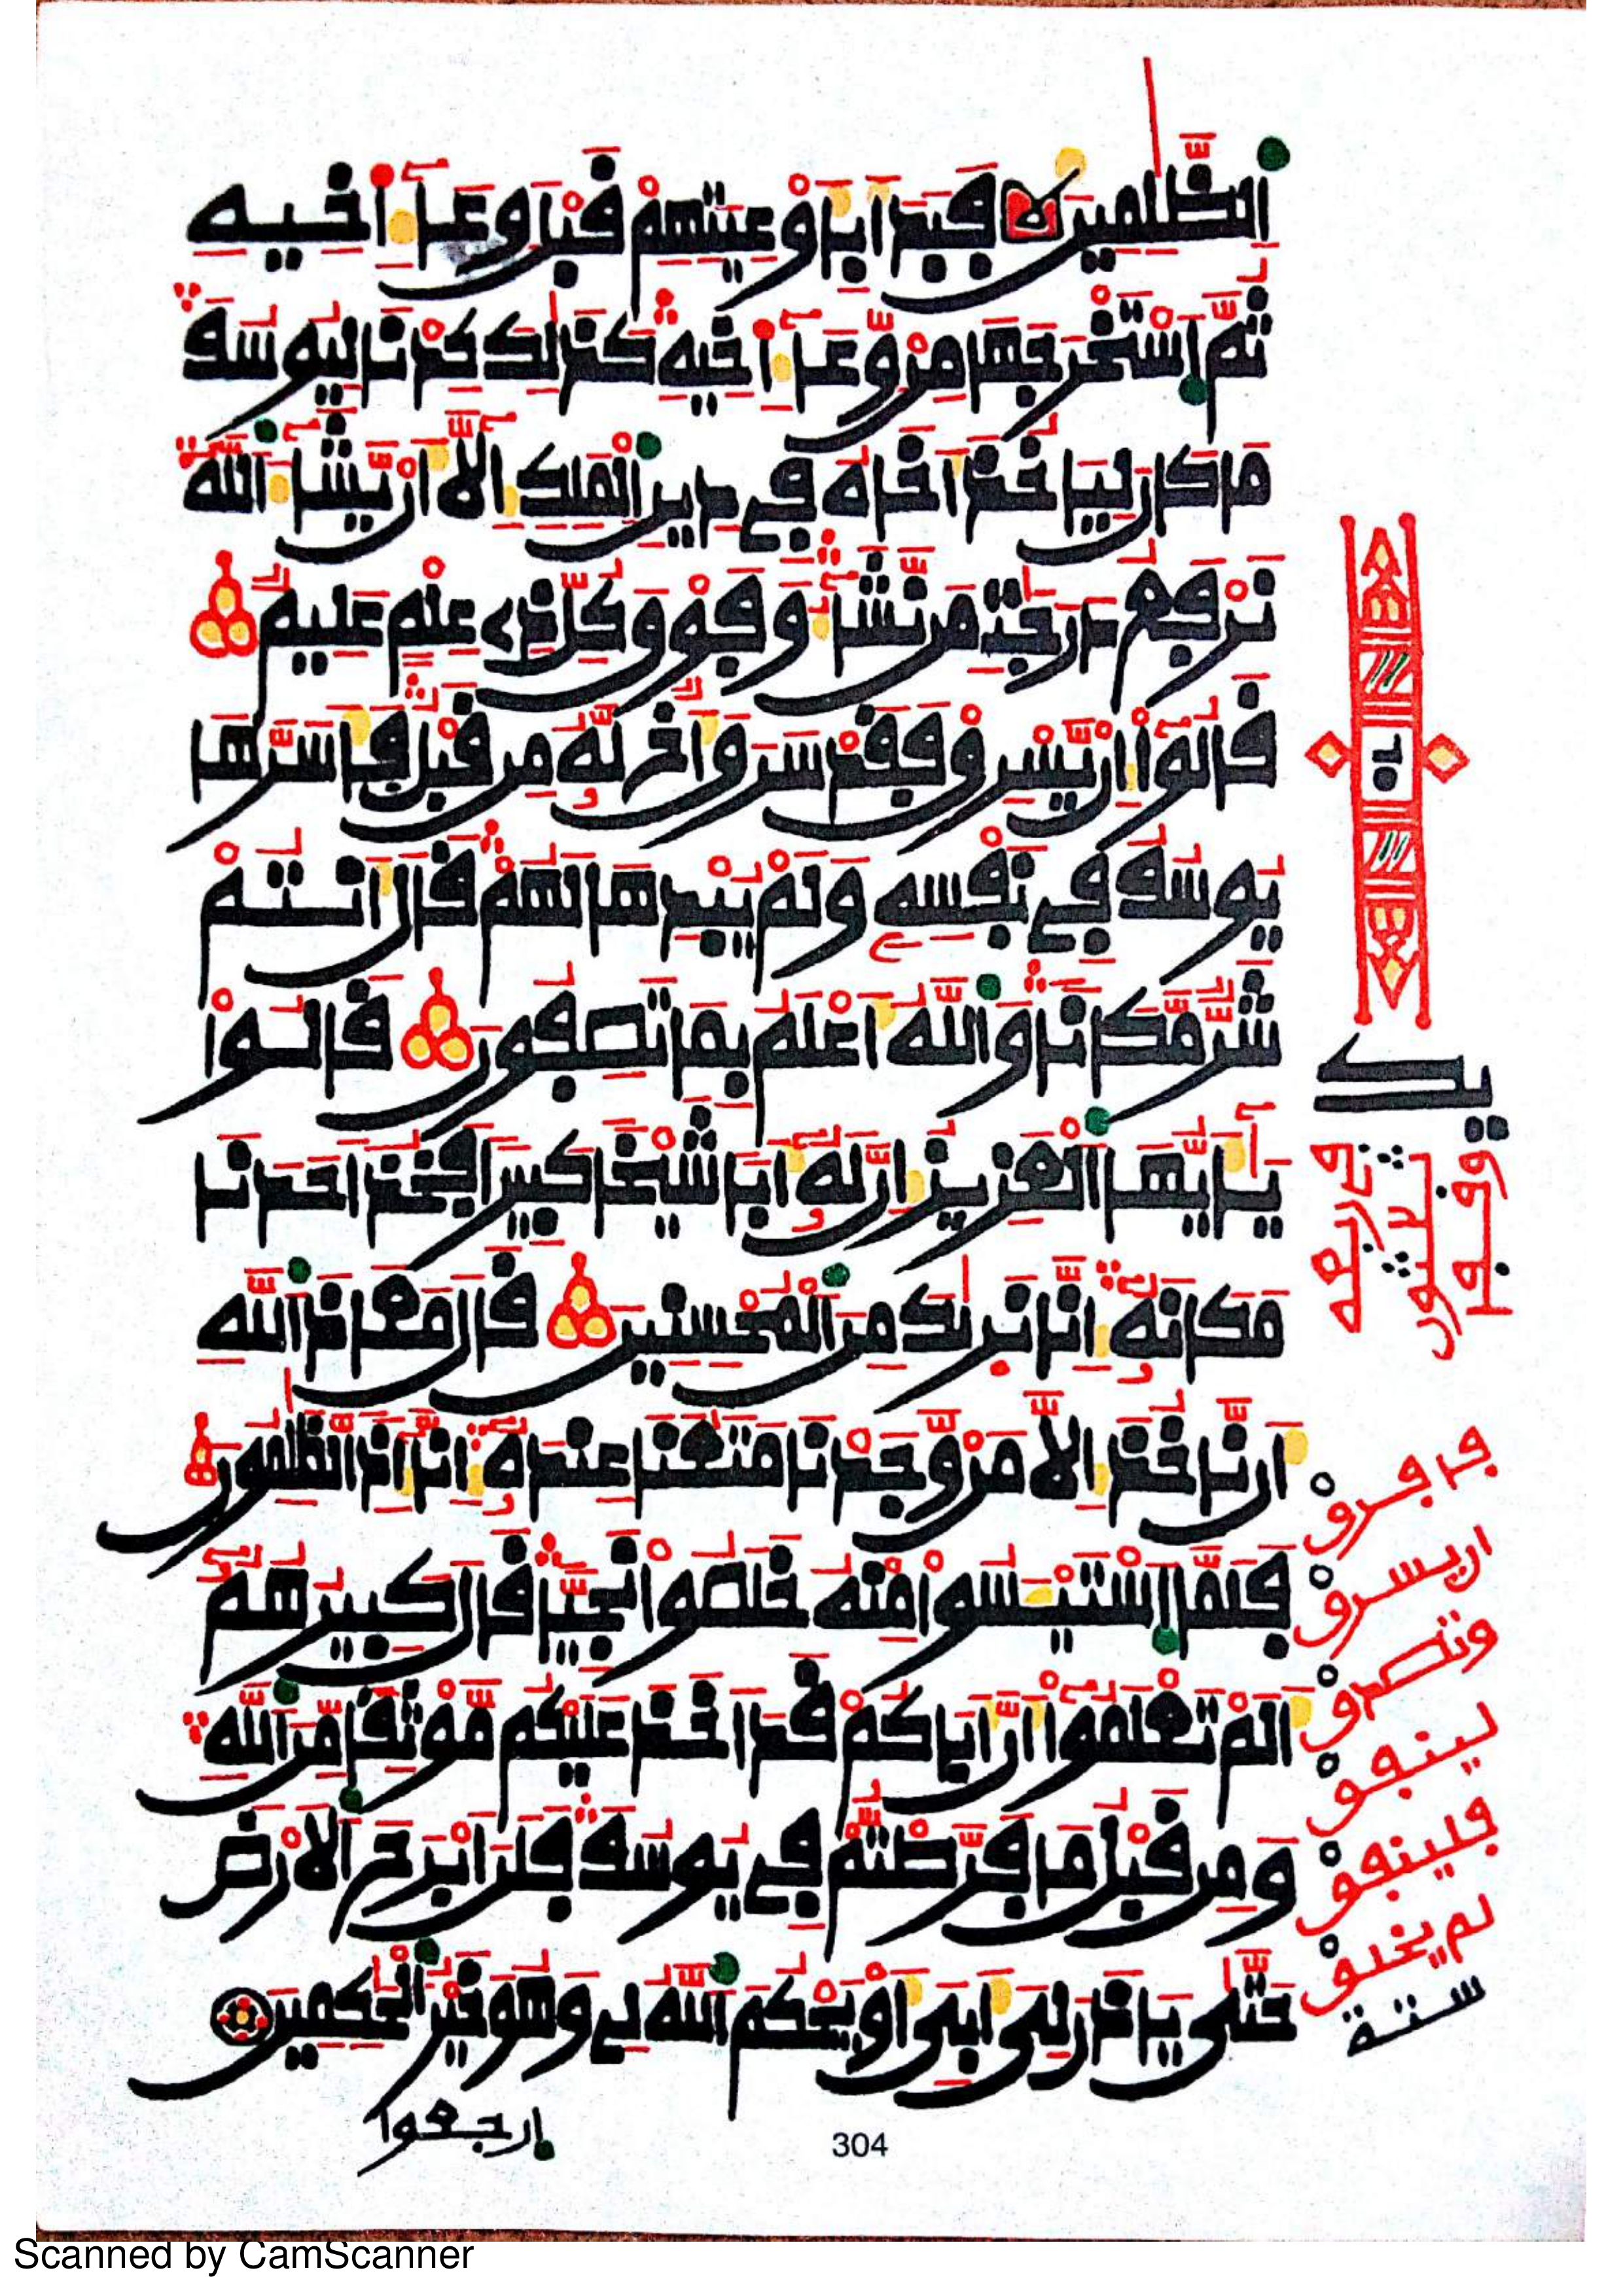 الظَّلِمِينَ فَبَدَأَ بِأَوْعِيَتِهِمْ قَبْلَ وِعَآءِ اَخِيهِ
ثُمَّ اَسْتَخْرَجَهَا مِنْ وِّعَآءِ اَخِيهِ كَذَٰلِكَ كِدْنَا لِيُوسُفَ
مَا كَانَ لِيَاخُذَ أَخَاهُ فِي دِينِ الْمَلِكِ إِلَّا أَنْ يَّشَآءَ اَللَّهُ
نَرْفَعُ دَرَجَٰتِ مَن نَّشَآءُ وَفَوْقَ كُلِّ ذِي عِلْمٍ عَلِيمٌ
قَالُوٓا إِنْ يَّسْرِقْ فَقَدْ سَرَقَ أَخٌ لَّهُۥ مِن قَبْلُ فَأَسَرَّهَا
يُوسُفُ فِي نَفْسِهِۦ وَلَمْ يُبْدِهَا لَهُمْ قَالَ أَنتُمْ
شَرٌّ مَّكَانًا وَاللَّهُ أَعْلَمُ بِمَا تَصِفُونَ قَالُوا
يَٰٓأَيُّهَا الْعَزِيزُ إِنَّ لَهُۥٓ أَبًا شَيْخًا كَبِيرًا فَخُذْ أَحَدَنَا
مَكَانَهُۥٓ إِنَّا نَرَىٰكَ مِنَ الْمُحْسِنِينَ قَالَ مَعَاذَ اَللَّهِ
أَن نَّاخُذَ إِلَّا مَنْ وَّجَدْنَا مَتَٰعَنَا عِندَهُۥٓ إِنَّآ إِذًا لَّظَٰلِمُونَ
فَلَمَّا اَسْتَيْـَٔسُوا مِنْهُ خَلَصُوا نَجِيًّا قَالَ كَبِيرُهُمُۥٓ
أَلَمْ تَعْلَمُوٓا أَنَّ أَبَاكُمْ قَدْ أَخَذَ عَلَيْكُم مَّوْثِقًا مِّنَ اَللَّهِ
وَمِن قَبْلُ مَا فَرَّطتُّمْ فِي يُوسُفَ فَلَنْ أَبْرَحَ الْأَرْضَ
حَتَّىٰ يَاذَنَ لِىَ أَبِىَ أَوْ يَحْكُمَ اَللَّهُ لِي وَهُوَ خَيْرُ الْحَٰكِمِينَ
ارجعوا
304
Scanned by CamScanner